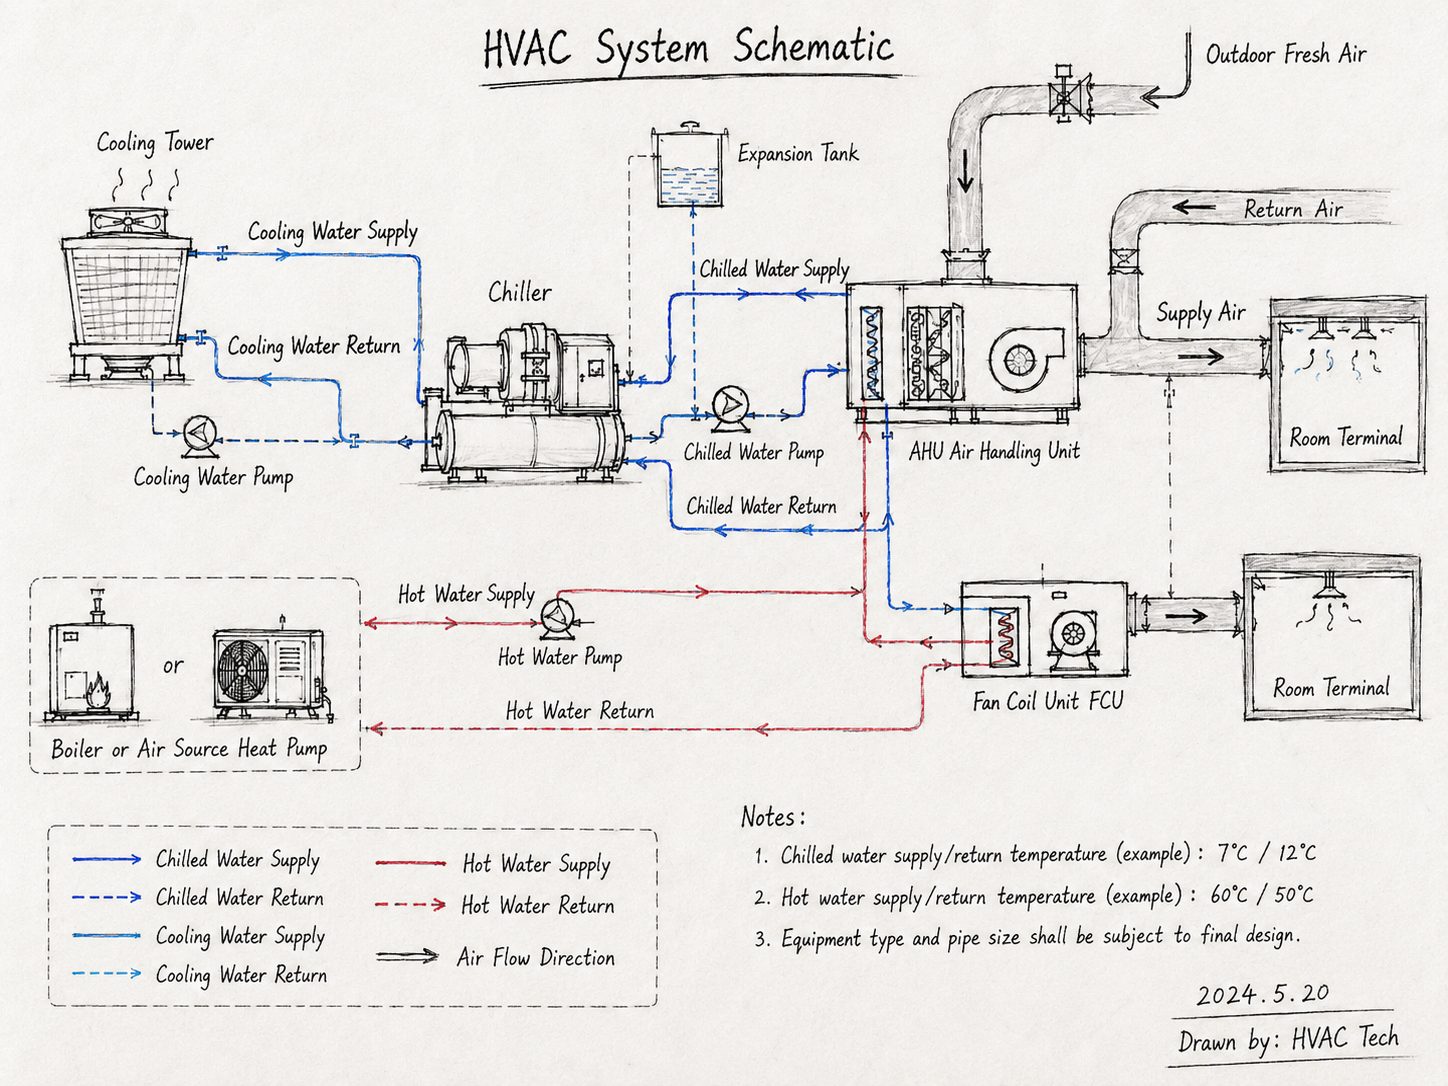 HVAC System Schematic
Outdoor Fresh Air
Cooling Tower
Expansion Tank
Return Air
Cooling Water Supply
Chilled Water Supply
Chiller
Supply Air
Cooling Water Return
Room Terminal
AHU Air Handling Unit
Chilled Water Pump
Cooling Water Pump
Chilled Water Return
Hot Water Supply
Hot Water Pump
or
Room Terminal
Fan Coil Unit FCU
Hot Water Return
Boiler or Air Source Heat Pump
Notes:
1. Chilled water supply/return temperature (example) : 7°C / 12°C
2. Hot water supply/return temperature (example) : 60°C / 50°C
3. Equipment type and pipe size shall be subject to final design.
Chilled Water Supply
Chilled Water Return
Cooling Water Supply
Cooling Water Return
Hot Water Supply
Hot Water Return
Air Flow Direction
2024.5.20
Drawn by: HVAC Tech